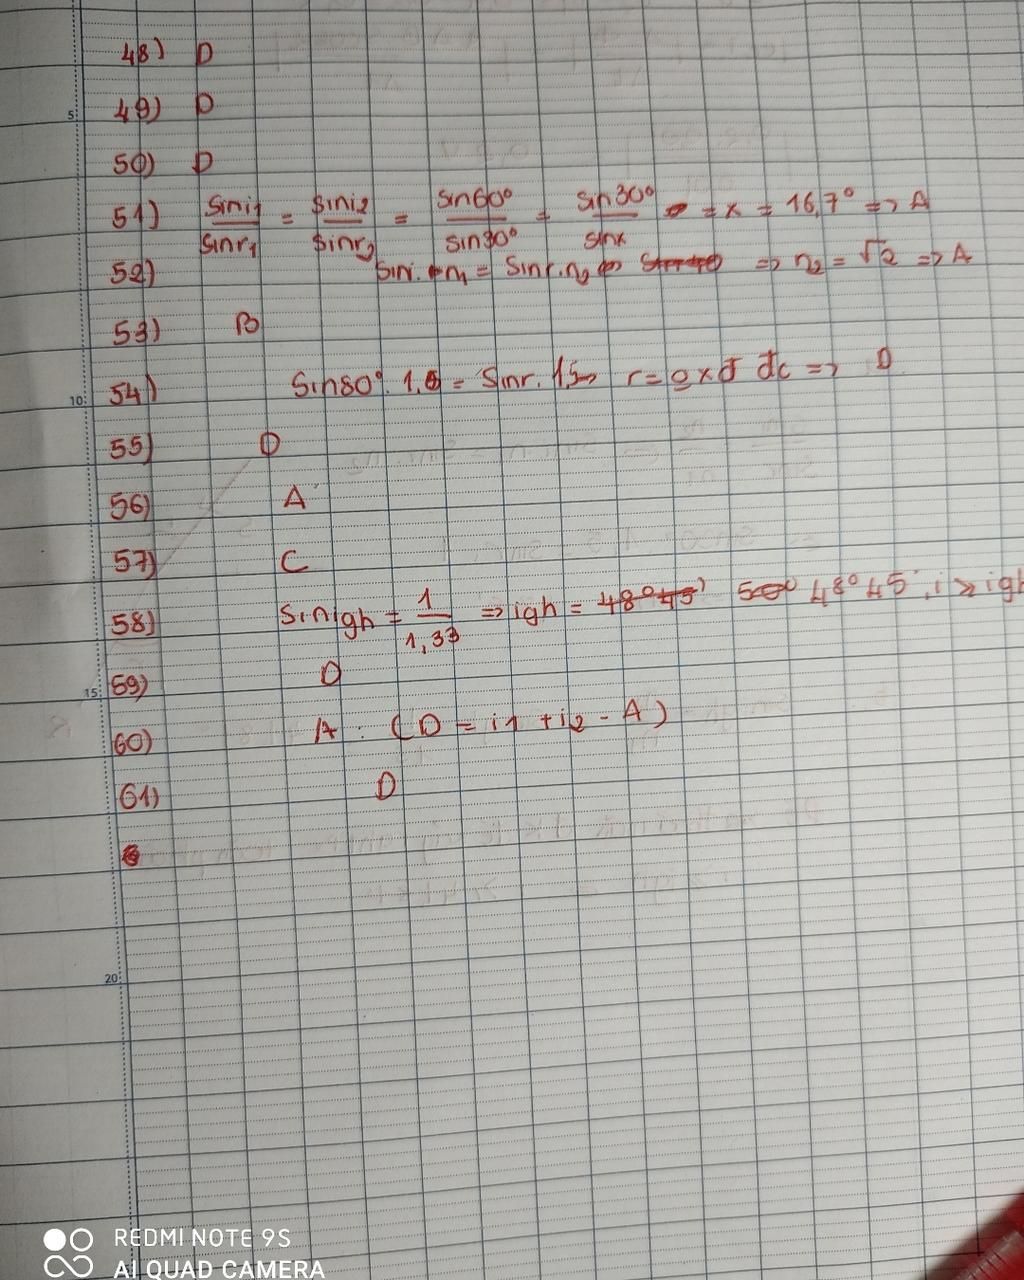 48) D
49) D
5
50) D
51) sini1/sinr1 = sini2/sinr2 = sin60°/sin30° = sin30°/sinx = x = 16,7° => A
52) sini.n1 = sinr.n2 => n2 = √2 => A
53) B
54) Sin80°. 1,5 = Sinr. 1 => r = => D
10
55) D
56) A
57) C
58) Sinigh = 1/1,33 => igh = 48°45' 48°45', i ≥ igh
59) D
15
60) A. (D = i1 + i2 - A)
61) D
20
REDMI NOTE 9S
AI QUAD CAMERA